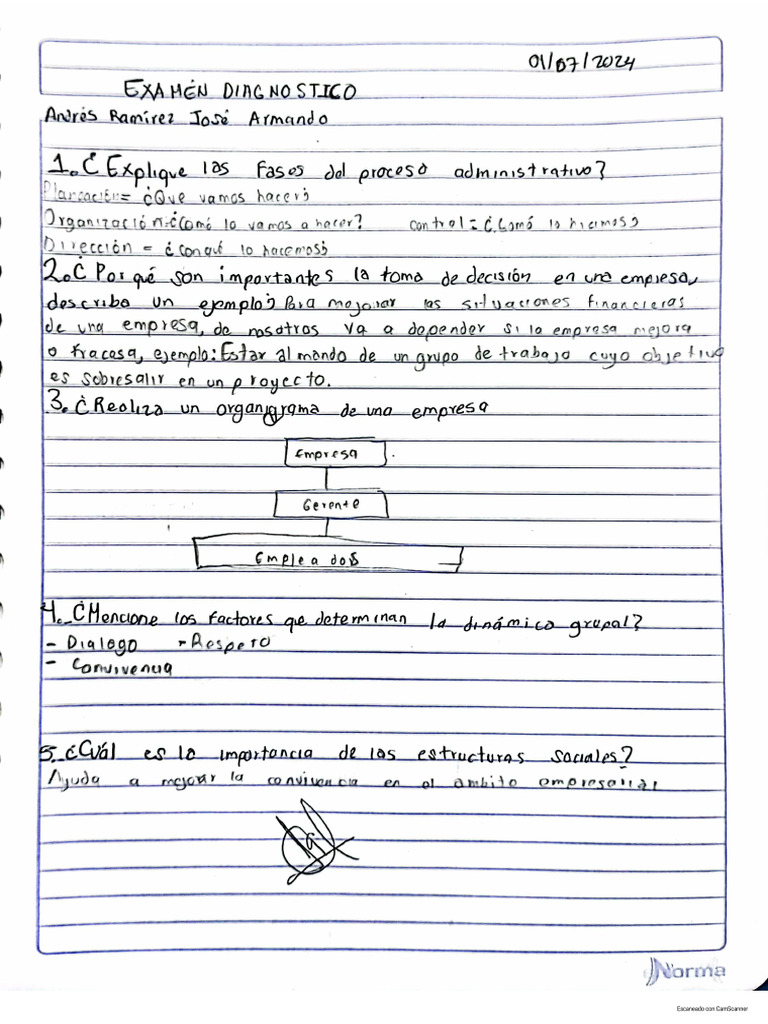 01/07/2024
EXAMÉN DIAGNOSTICO
Andrés Ramírez José Armando
1. ¿Explique las fases del proceso administrativo?
Planeación = ¿Que vamos hacer?
Organización = ¿Como lo vamos a hacer? control = ¿Como lo hicimos?
Dirección = ¿con qué lo hacemos?
2. ¿Por qué son importantes la toma de decisión en una empresa,
describa un ejemplo? Para mejorar las situaciones financieras
de una empresa, de nosotros va a depender si la empresa mejora
o fracasa, ejemplo: Estar al mando de un grupo de trabajo cuyo objetivo
es sobresalir en un proyecto.
3. ¿Realiza un organigrama de una empresa
Empresa
Gerente
Empleados
4. ¿Mencione los factores que determinan la dinámica grupal?
- Dialogo - Respeto
- Convivencia
5. ¿Cuál es la importancia de las estructuras sociales?
Ayuda a mejorar la convivencia en el ambito empresarial
Norma
Escaneado con CamScanner